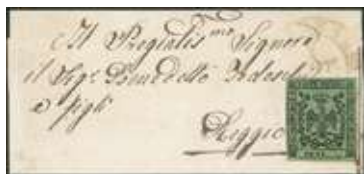 Il Pregiatis.mo Signore
il Sig.r Benedetto
e figli
Reggio